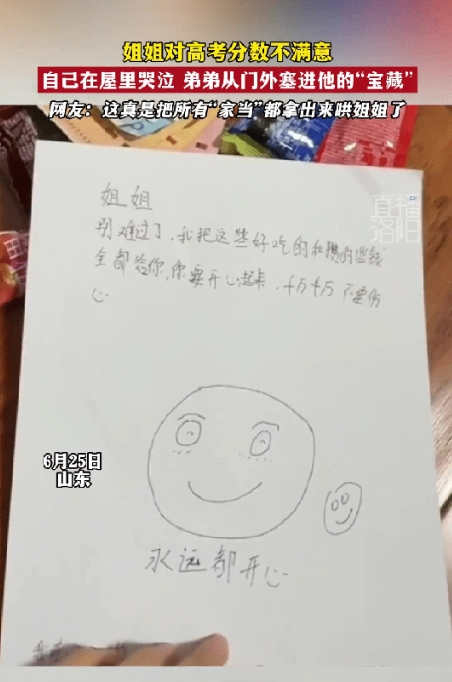 姐姐对高考分数不满意
自己在屋里哭泣 弟弟从门外塞进他的“宝藏”
网友：这真是把所有“家当”都拿出来哄姐姐了
直播
洛阳
姐姐
别难过了，我把这些好吃的和我的些钱
全都给你，你要开心起来，千万千万不要伤
心
6月25日
山东
永远都开心